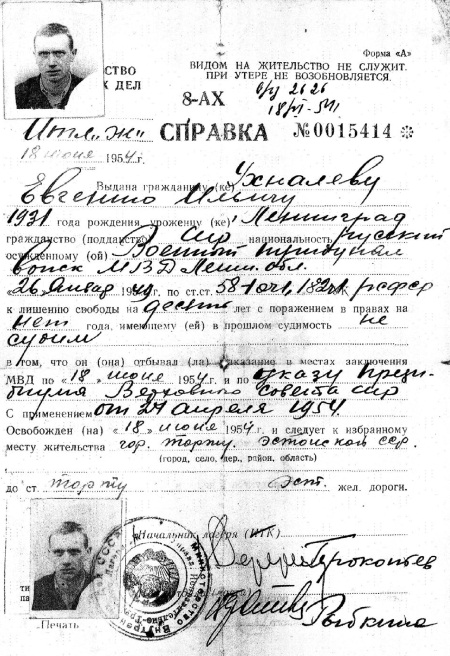 Форма «А»
СТВО
Х ДЕЛ
ВИДОМ НА ЖИТЕЛЬСТВО НЕ СЛУЖИТ.
ПРИ УТЕРЕ НЕ ВОЗОБНОВЛЯЕТСЯ.
8-АХ
СПРАВКА №0015414
18 июня 1954 г.
Выдана гражданину (ке) Ухналеву
Евгению Ильичу
1931 года рождения, уроженцу (ке) Ленинград
гражданство (подданство) национальность русский
осужденному (ой) Военный трибунал
войск МВД Лен. обл.
«26» января по ст.ст. 58-10 ч1, РСФСР
к лишению свободы на десять лет с поражением в правах на
нет года, имеющему (ей) в прошлом судимость не
судим
в том, что он (она) отбывал (ла) наказание в местах заключения
МВД по «18» июня 1954 г. и по указу Прези-
диума Верховного совета
С применением от 24 апреля 1954
Освобожден (на) «18» июня 1954 г. и следует к избранному
месту жительства гор. Тарту. Эстонской ССР.
(город, село, дер., район, область)
до ст. Тарту Эст. жел. дороги.
Начальник лагеря (ИТК)
Прокопьев
Рыбкина
Печать